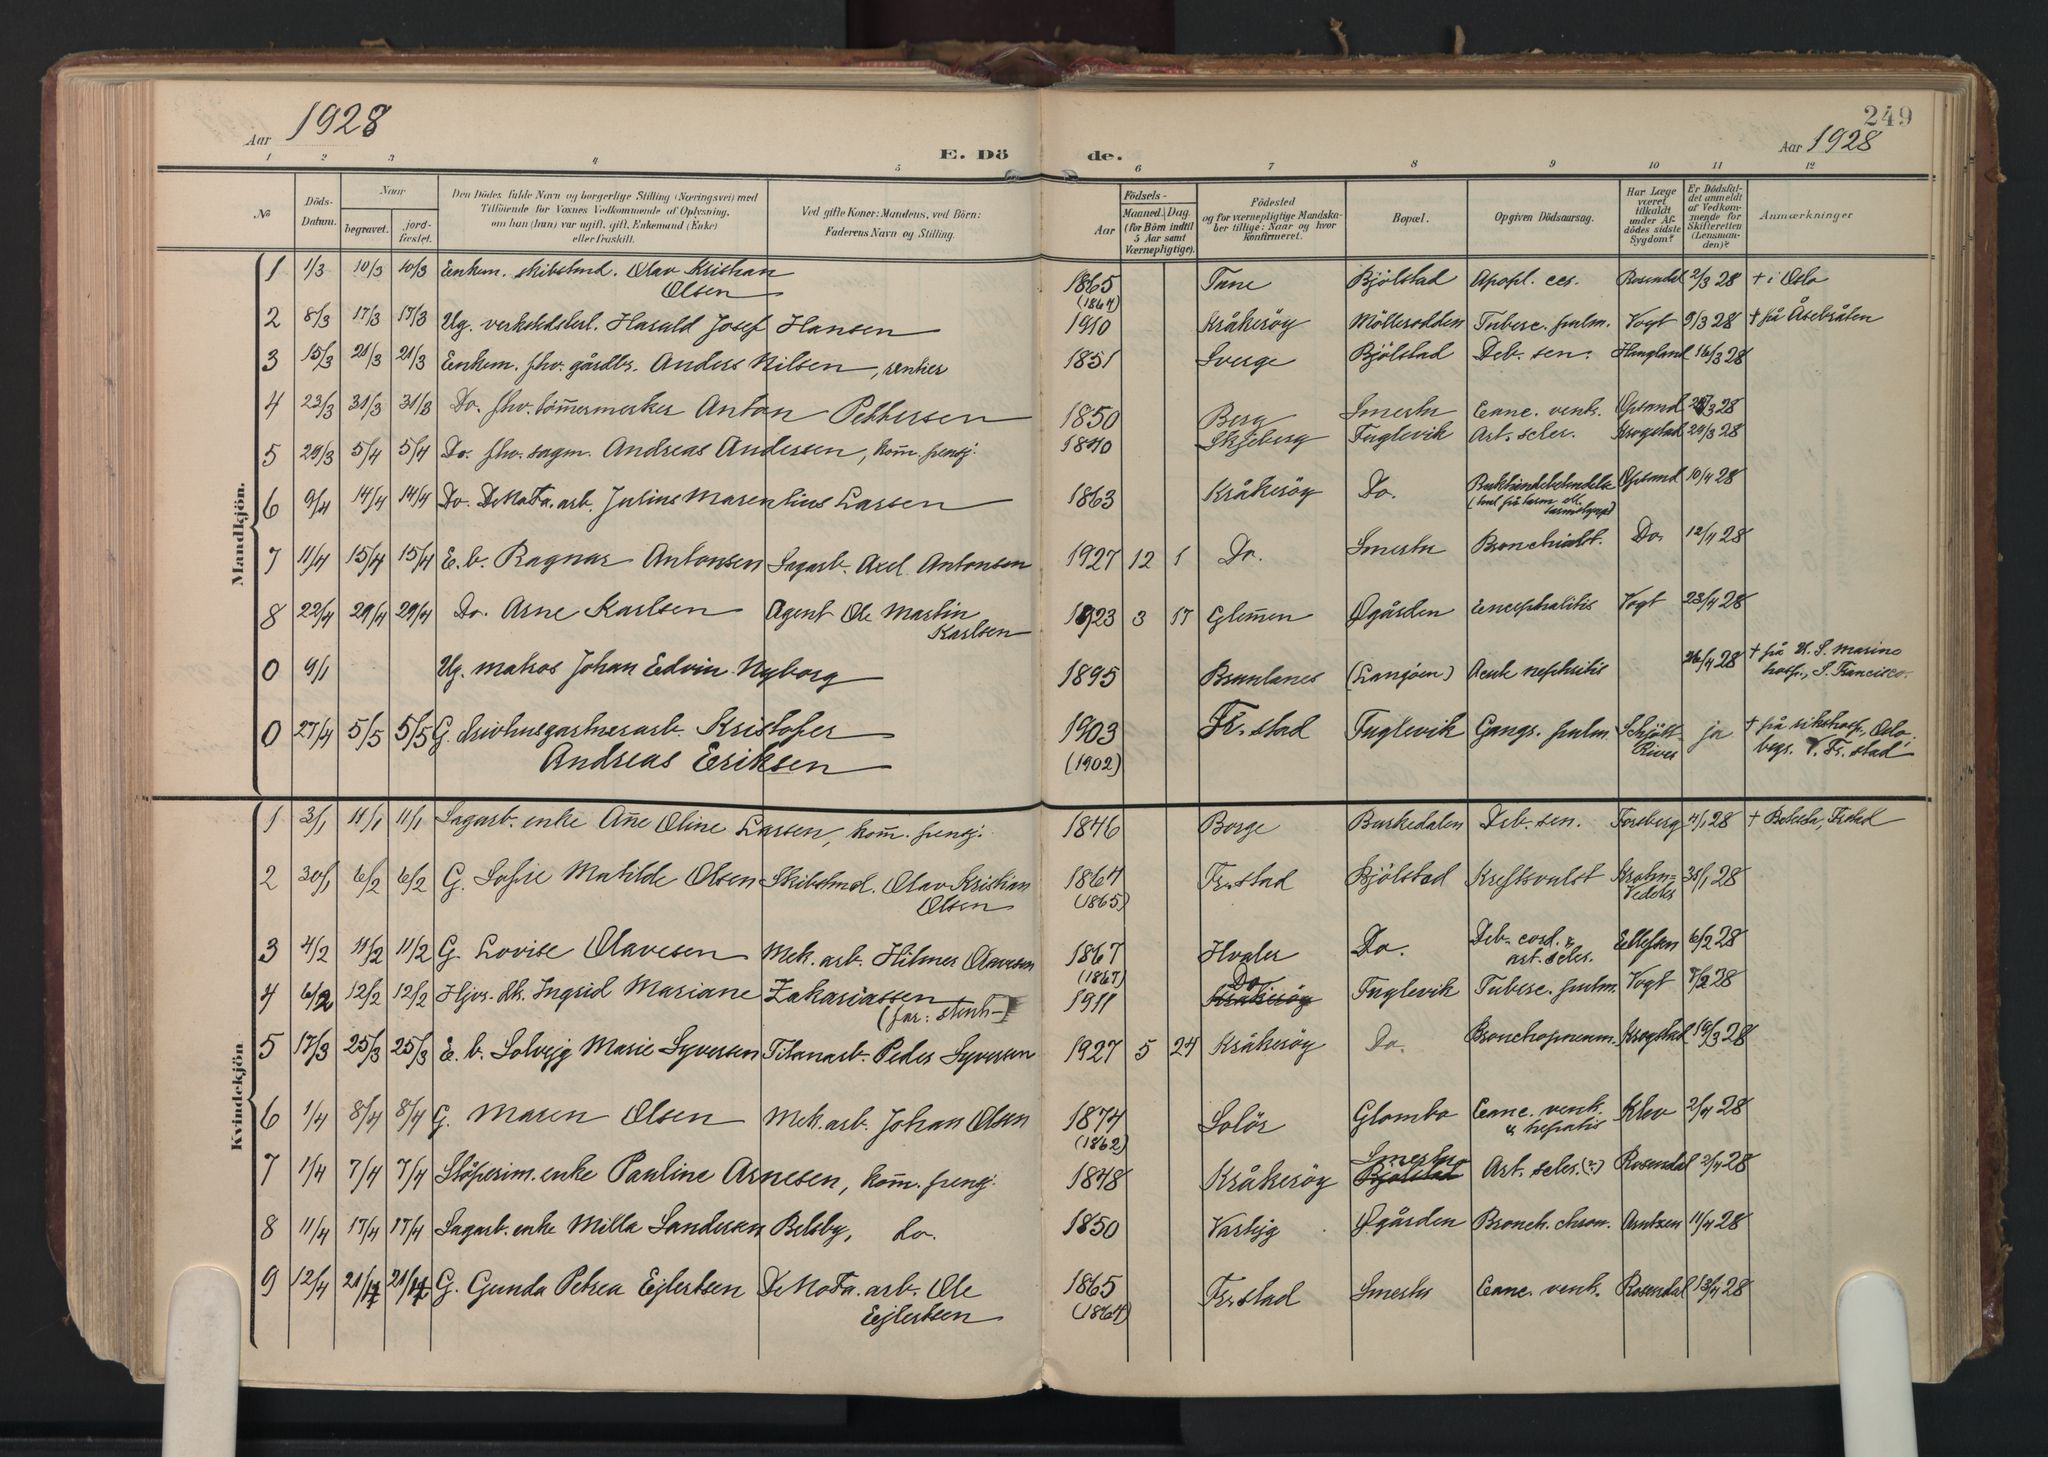 249
Aar 1928
Aar 1928
E. Dö de.
1 2 3 4 5 6 7 8 9 10 11 12
№
Döds-Datum.
Naar
begravet.
jord-fæstet.
Den Dödes fulde Navn og borgerlige Stilling (Næringsvei) med Tilföiende for Voxnes Vedkommende af Oplysning, om han (hun) var ugift, gift, Enkemand (Enke) eller fraskilt.
Ved gifte Koner: Mandens, ved Börn: Faderens Navn og Stilling.
Aar
Födsels-
Maaned. Dag.
(for Börn indtil 5 Aar samt Værnepligtige).
Födested og for værnepligtige Mandskaber tillige: Naar og hvor Konfirmeret.
Bopæl.
Opgiven Dödsaarsag.
Har Læge været tilkaldt under Afdödes sidste Sygdom?
Er Dödsfaldet anmeldt af Vedkommende for Skifteretten (Lensmanden)?
Anmærkninger
Mandkjön.
1 1/3 10/3 10/3 Enkem. skibstmd. Olav Kristian Olsen 1865 (1864) Tune Bjölstad Apopl. cer. Rosendal 2/3 28 † i Oslo
2 8/3 17/3 17/3 Ug. Harald Josef Hansen 1910 Kråkeröy Mölleradden Tuberc. pulm. Vogt 9/3 28 † på Åsebråten
3 15/3 21/3 21/3 Enkem. fhv. gårdbr. Anders Nilsen, rentier 1851 Sverge Bjölstad Deb. sen. Haugland 16/3 28
4 23/3 31/3 31/3 Do. fhv. tömmermerker Anton Pettersen 1850 Berg Smertu Canc. ventr. Opsand 3 28
5 29/3 5/4 5/4 Do. fhv. sagm. Andreas Andersen, kom. pensj. 1840 Skjeberg Fuglevik Art. scler. Krogstad 29/3 28
6 9/4 14/4 14/4 Do. DeNoFa. arb. Julius Marentius Larsen 1863 Kråkeröy Do. Opsand 10/4 28
7 11/4 15/4 15/4 E. b. Ragnar Antonsen Sagarb. Axel Antonsen 1927 12 1 Do. Smertu Bronchialt. Do. 12/4 28
8 22/4 29/4 29/4 Do. Arne Karlsen Agent Ole Martin Karlsen 1923 3 17 Glemen Øgården Encephalitis Vogt 23/4 28
0 9/1 Ug. matros Johan Edvin Nyborg 1895 Brunlanes (Langöen) Acut nephritis 26/4 28 † på U. S. marine hosp., S. Francisco.
0 27/4 5/5 5/5 G. drivhusgartnerarb. Kristofer Andreas Eriksen 1903 (1902) Fr. stad Fuglevik Gangr. pulm. Schjött-River ja † på rikshosp., Oslo. begr. V. Fr. stad
Kvindekjön
1 3/1 11/1 11/1 Sagarb. enke Ane Oline Larsen, kom. pensj. 1846 Borge Buskedalen Deb. sen. Forsberg 4/1 28 † Betesda, Frstad
2 30/1 6/2 6/2 G. Sofie Matilde Olsen Skibstmd. Olav Kristian Olsen 1864 (1865) Fr. stad Bjölstad Kreftsvulst Krohn-Vedeler 31/1 28
3 4/2 11/2 11/2 G. Lovise Olavesen Mek. arb. Hilmer Olavesen 1867 (1867) Hvaler Do. Deb. cord. & art. scler. Ellefsen 6/2 28
4 6/2 12/2 12/2 Hjvr. dk. Ingrid Mariane Zakariassen (far: stenh-) 1911 Do Kråkeröy Fuglevik Tuberc. pulm. Vogt 7/2 28
5 17/3 25/3 25/3 E. b. Solvejg Marie Syversen Titanarb. Peder Syversen 1927 5 24 Kråkeröy Do. Bronchopneum. Krogstad 19/3 28
6 1/4 8/4 8/4 G. Maren Olsen Mek. arb. Johan Olsen 1874 (1862) Solör Glombo Canc. ventr. & hepatis Klov 2/4 28
7 1/4 7/4 7/4 Stöperim. enke Pauline Arnesen, kom. pensj. 1848 Kråkeröy Smertu Bjölstad Art. scler. (?) Rosendal 2/4 28
8 11/4 17/4 17/4 Sagarb. enke Milla Sandersen Belsby, do. 1850 Varteig Øgården Bronch. chron. Arntzen 11/4 28
9 12/4 21/4 21/4 G. Gunda Petrea Ejlertsen DeNoFa. arb. Ole Ejlertsen 1865 (1864) Fr. stad Smertu Canc. ventr. Rosendal 13/4 28